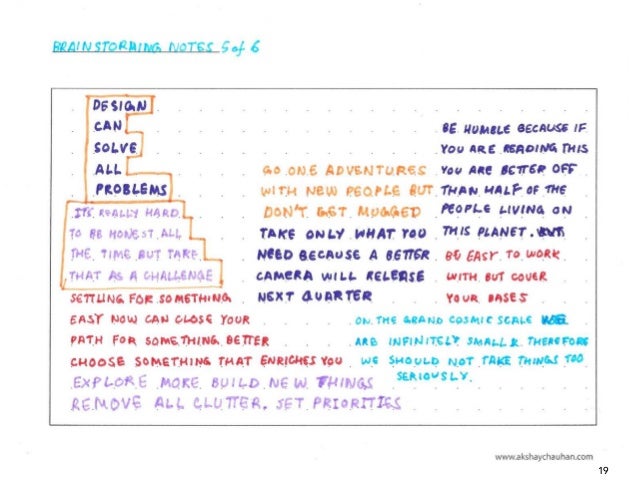 BRAINSTORMING NOTES 5 of 6
DESIGN
CAN
SOLVE
ALL
PROBLEMS
IT'S REALLY HARD
TO BE HONEST ALL
THE TIME BUT TAKE
THAT AS A CHALLENGE
SETTLING FOR SOMETHING
EASY NOW CAN CLOSE YOUR
PATH FOR SOMETHING BETTER
CHOOSE SOMETHING THAT ENRICHES YOU
EXPLORE MORE BUILD NEW THINGS
REMOVE ALL CLUTTER. SET PRIORITIES
GO ONE ADVENTURES
WITH NEW PEOPLE BUT
DON'T GET MUGGED
TAKE ONLY WHAT YOU
NEED BECAUSE A BETTER
CAMERA WILL RELEASE
NEXT QUARTER
BE HUMBLE BECAUSE IF
YOU ARE READING THIS
YOU ARE BETTER OFF
THAN HALF OF THE
PEOPLE LIVING ON
THIS PLANET.
BE EASY TO WORK
WITH BUT COVER
YOUR BASES
ON THE GRAND COSMIC SCALE WE
ARE INFINITELY SMALL & THEREFORE
WE SHOULD NOT TAKE THINGS TOO
SERIOUSLY.
www.akshaychauhan.com
19